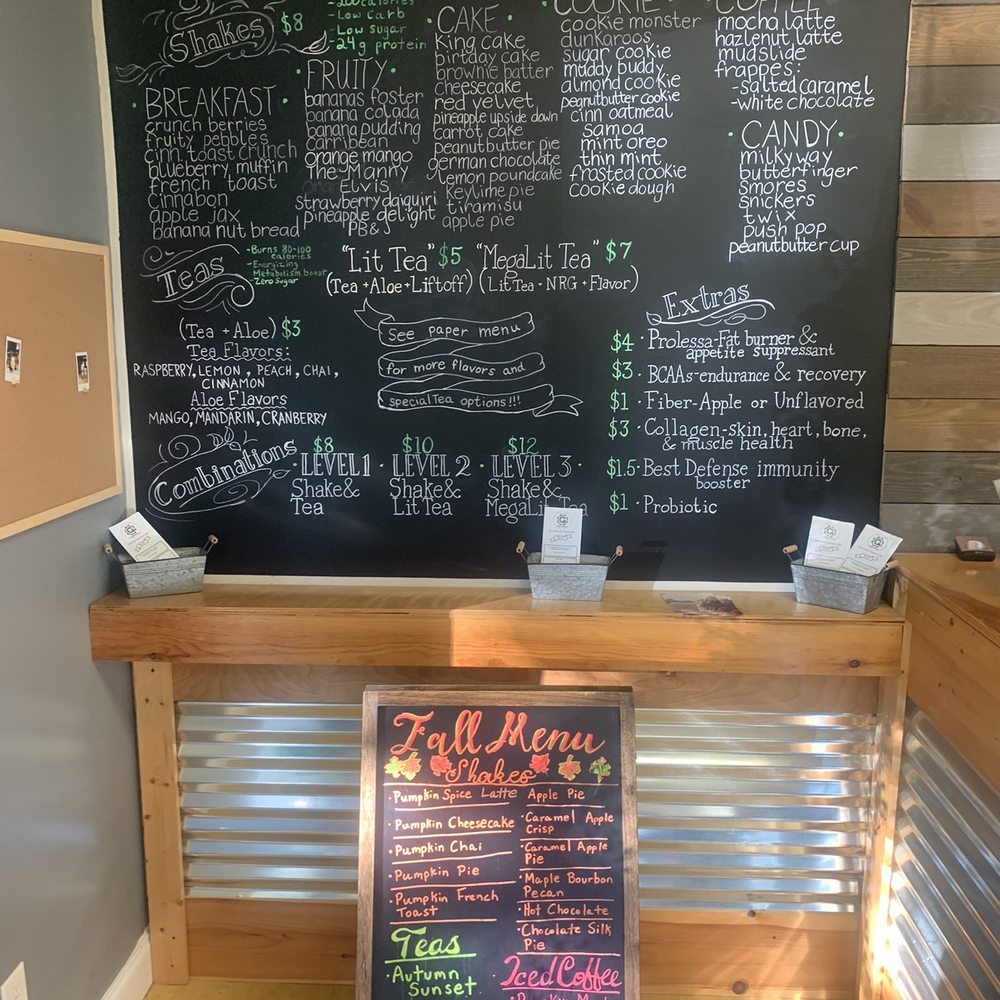 Shakes $8
-200calories
-Low Carb
-Low sugar
-24g protein
BREAKFAST
crunch berries
fruity pebbles
cinn toast crunch
blueberry muffin
french toast
Cinnabon
apple jax
banana nut bread
FRUITY
bananas foster
banana colada
banana pudding
carribean
orange mango
The Manny
Elvis
strawberry daiquiri
pineapple delight
PB&J
CAKE
king cake
birtday cake
brownie batter
cheesecake
red velvet
pineapple upside down
carrot cake
peanutbutter pie
german chocolate
lemon poundcake
Keylime pie
tiramisu
apple pie
COOKIE
cookie monster
dunkaroos
sugar cookie
muddy buddy
almond cookie
peanutbutter cookie
cinn oatmeal
samoa
mint oreo
thin mint
frosted cookie
cookie dough
COFFEE
mocha latte
hazlenut latte
mudslide
frappes:
-salted caramel
-white chocolate
CANDY
milkyway
butterfinger
smores
snickers
twix
push pop
peanutbutter cup
Teas
-Burns 80-100
calories
-Energizing
Metabolism boost
Zero Sugar
"Lit Tea" $5
(Tea+Aloe+Liftoff)
"MegaLit Tea" $7
(Lit Tea + NRG + Flavor)
(Tea + Aloe) $3
Tea Flavors:
RASPBERRY, LEMON, PEACH, CHAI,
CINNAMON
Aloe Flavors
MANGO, MANDARIN, CRANBERRY
See paper menu
for more flavors and
special Tea options!!!
Extras
$4 · Prolessa-Fat burner &
appetite suppressant
$3 · BCAAs-endurance & recovery
$1 · Fiber-Apple or Unflavored
$3 · Collagen-skin, heart, bone,
& muscle health
$1.5 · Best Defense immunity
booster
$1 · Probiotic
Combinations
$8
LEVEL 1
Shake&
Tea
$10
LEVEL 2
Shake&
Lit Tea
$12
LEVEL 3
Shake&
MegaLit Tea
Fall Menu
Shakes
· Pumpkin Spice Latte
· Pumpkin Cheesecake
· Pumpkin Chai
· Pumpkin Pie
· Pumpkin French
Toast
Apple Pie
· Caramel Apple
Crisp
· Caramel Apple
Pie
· Maple Bourbon
Pecan
· Hot Chocolate
· Chocolate Silk
Pie
Teas
· Autumn
Sunset
Iced Coffee